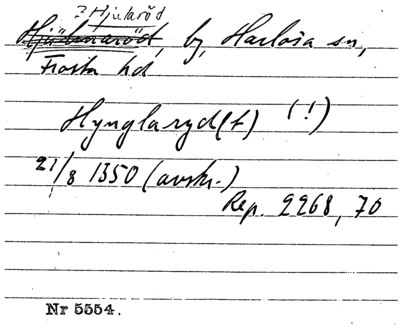 ? Hjularöd
Hjulmaröd, by, Harlösa sn,
Frosta hd
Hynglaryd(t) (!)
21/8 1350 (avskr.)
Rep. 2268, 70
Nr 5554.